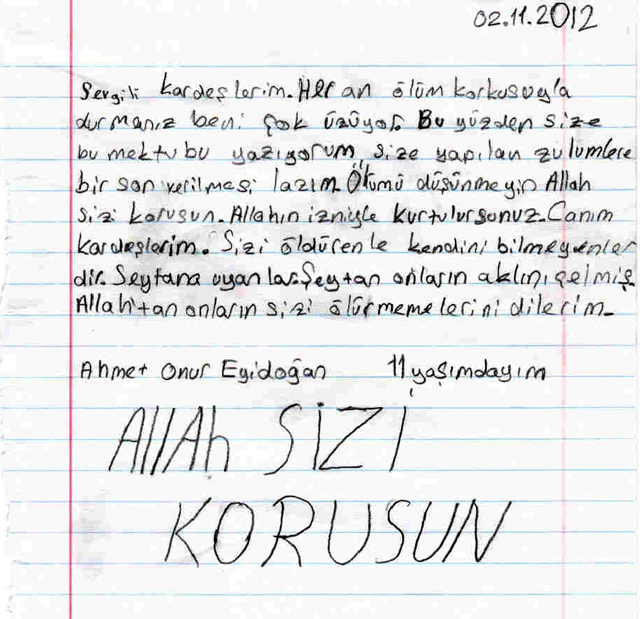 02.11.2012
Sevgili kardeşlerim. Her an ölüm korkusuyla
durmanız beni çok üzüyor. Bu yüzden size
bu mektubu yazıyorum size yapılan zulümlere
bir son verilmesi lazım. Ölümü düşünmeyin Allah
sizi korusun. Allahın izniyle kurtulursunuz. Canım
kardeşlerim. Sizi öldürenle kendini bilmeyenler
dir. Şeytana uyanlar. Şeytan onların aklını çelmiş
Allah'tan onların sizi ölürmemelerini dilerim.
Ahmet Onur Eyidoğan 11 yaşımdayım
Allah SİZİ
KORUSUN